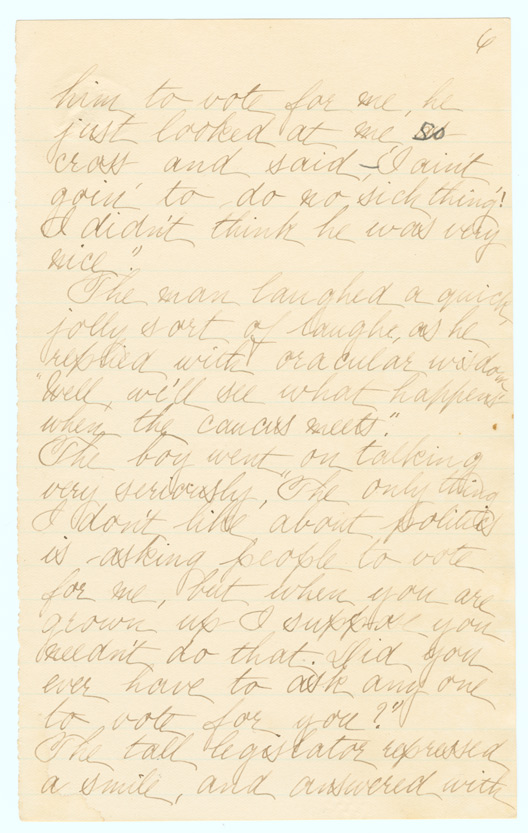 6
him to vote for me, he
just looked at me so
cross and said, "I ain't
goin' to do no sich thing"!
I didn't think he was very
nice."
The man laughed a quick,
jolly sort of laughe, as he
replied with oracular wisdom
"Well, we'll see what happens
when the caucus meets."
The boy went on talking
very seriously, "The only thing
I don't like about politics
is asking people to vote
for me, but when you are
grown up I suppose you
needn't do that. Did you
ever have to ask any one
to vote for you?"
The tall legislator repressed
a smile, and answered with